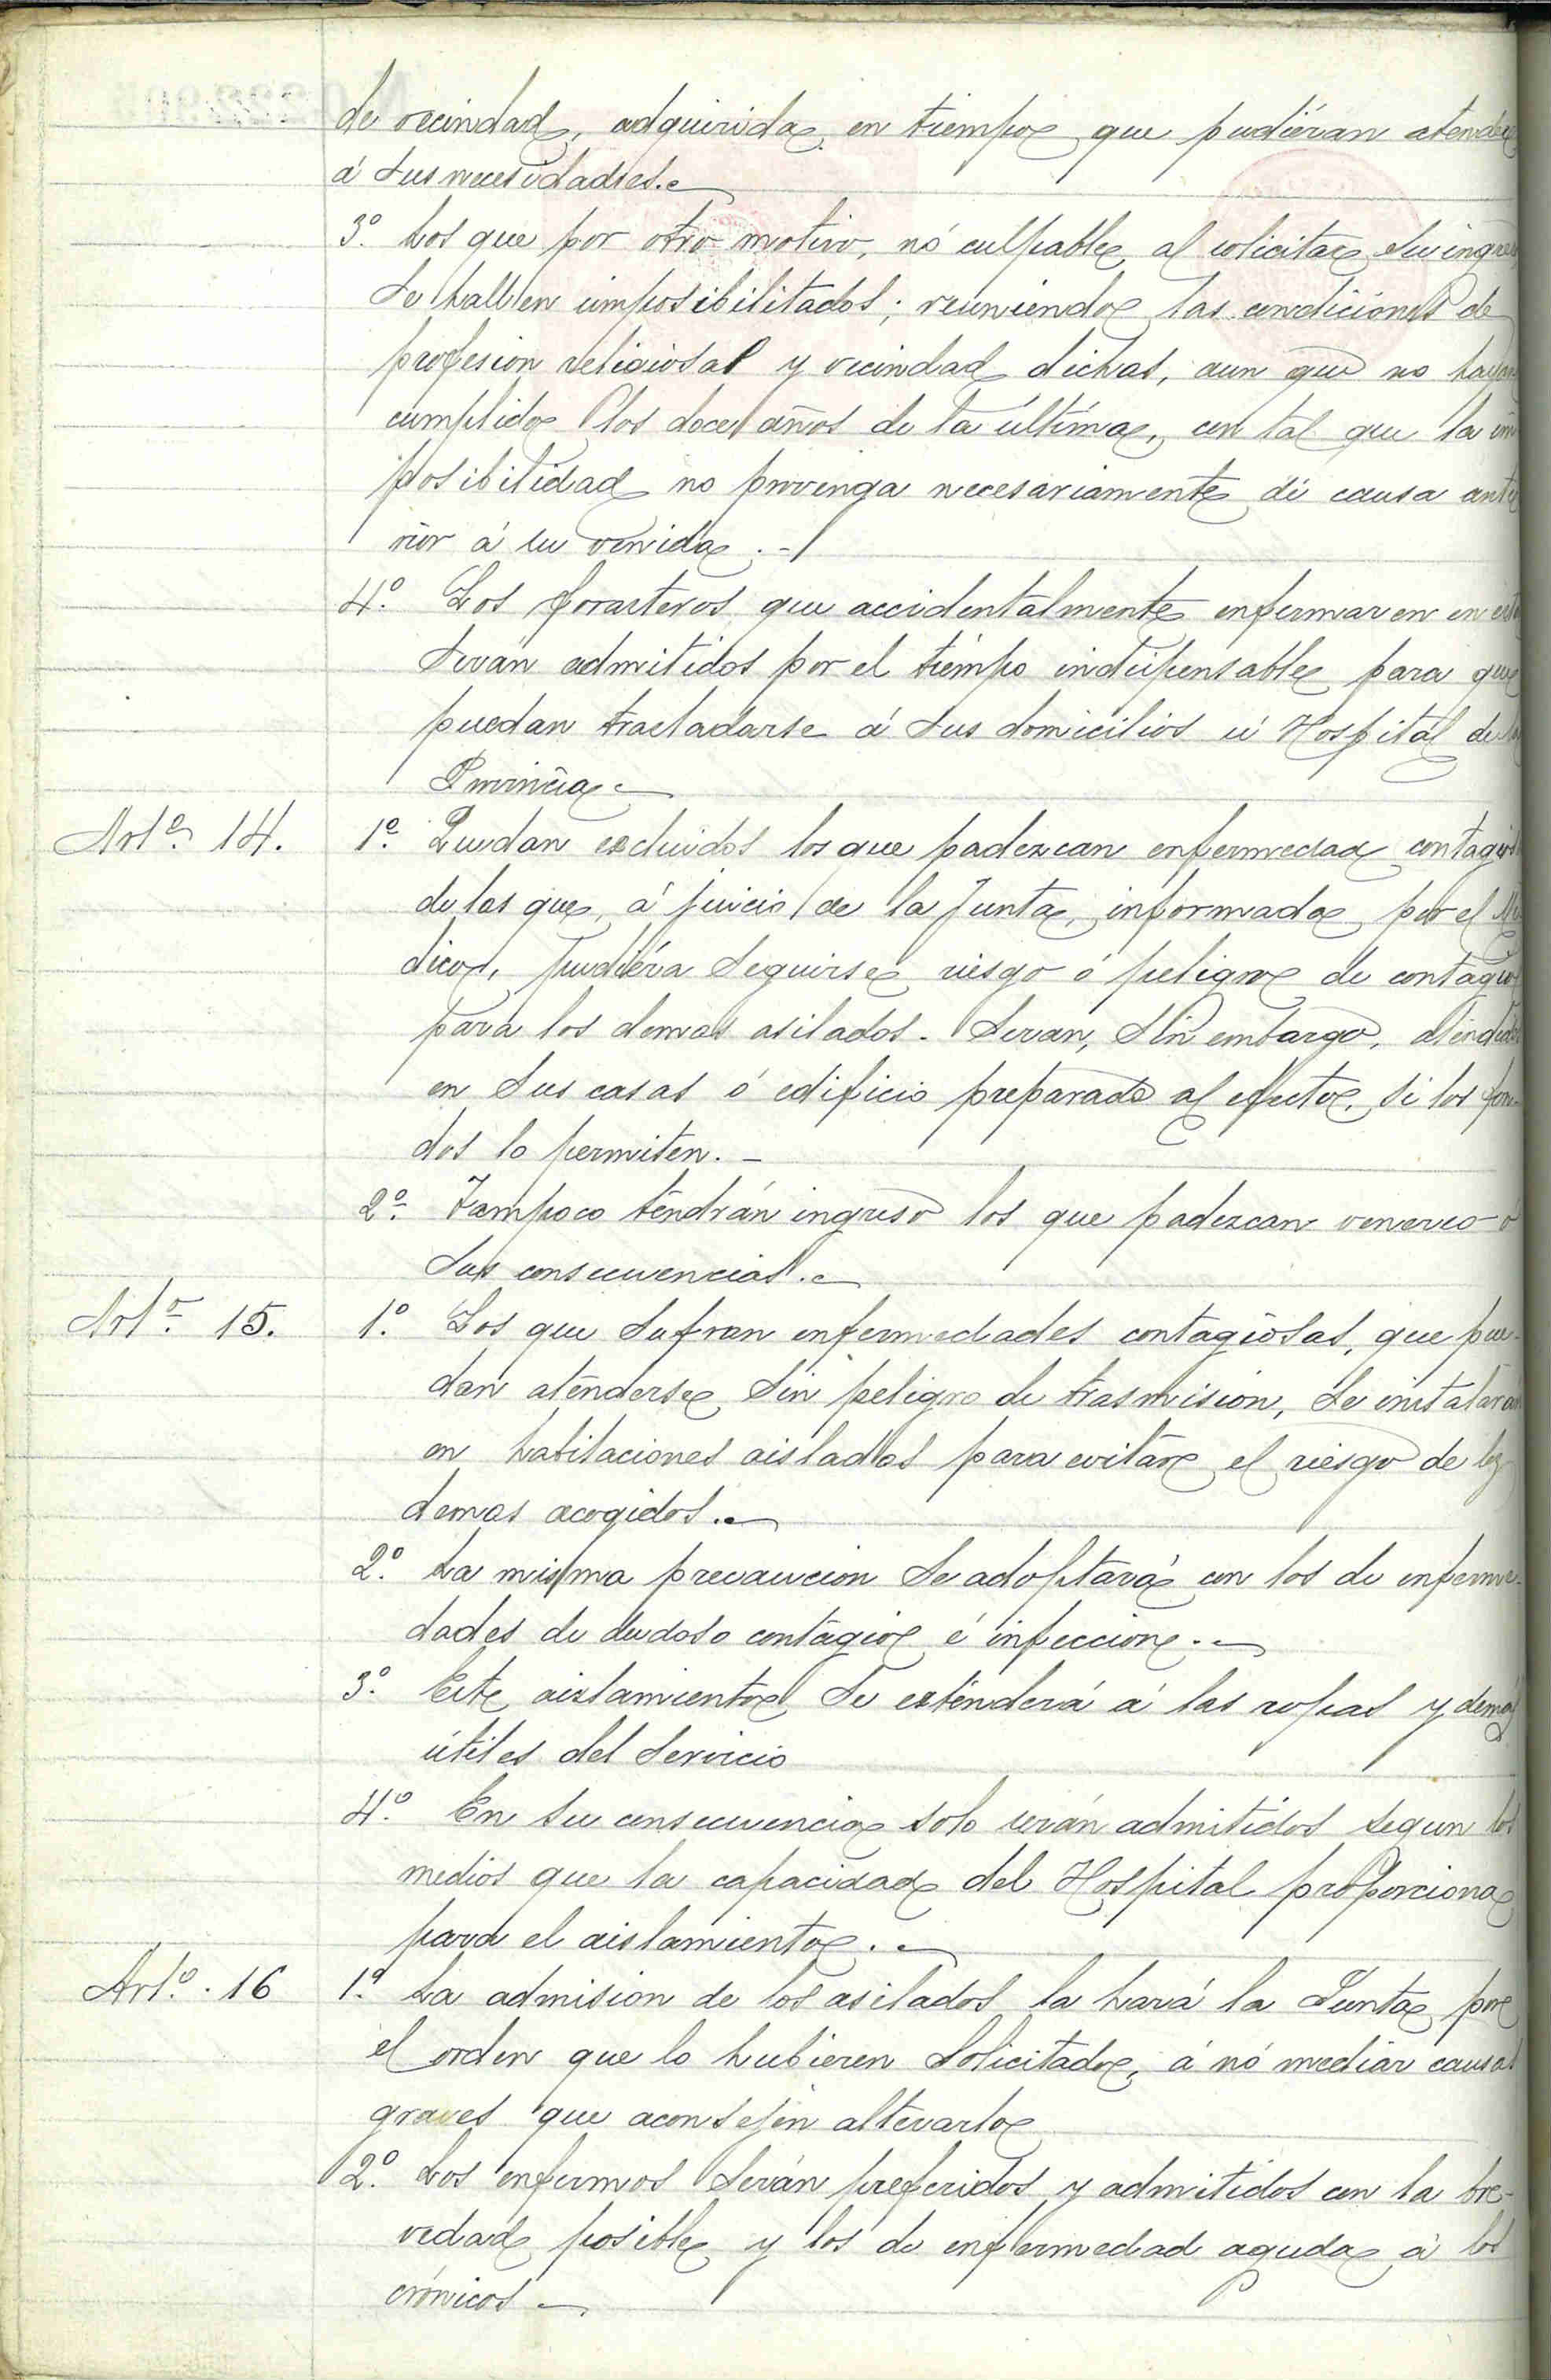 de vecindad, adquirida, en tiempo que pudiéran atender
á sus necesidades.
3º. Los que por otro motivo, nó culpable, al solicitar su ingreso
se hallen imposibilitados; reuniendo las condiciones de
profesion religiosa y vecindad dichas, aun que no hayan
cumplido los doce años de la última, con tal que la im
posibilidad no provenga necesariamente de causa ante
rior á su venida.-
4º. Los forasteros que accidentalmente enfermaren en esta
serán admitidos por el tiempo indispensable para que
puedan trasladarse á sus domicilios ú Hospital de la
Provincia
Artº. 14. 1º. Quedan excluidos los que padezcan enfermedad contagiosa
de las que, á juicio de la Junta, informada por el Mé
dico, pudiéra seguirse riesgo ó peligro de contagio
para los demas asilados. Seran, sin embargo, atendidos
en sus casas ó edificio preparado al efecto, si los fon-
dos lo permiten.-
2º. Tampoco tendrán ingreso los que padezcan venereo ó
sus consecuencias.
Artº. 15. 1º. Los que sufran enfermedades contagiosas, que pue-
dan atenderse sin peligro de trasmision, se instalarán
en habitaciones aisladas para evitar el riesgo de los
demas acogidos.
2º. La misma precaucion se adoptará con los de enferme-
dades de dudoso contagio é infeccion.-
3º. Este aislamiento se extenderá á las ropas y demás
útiles del servicio
4º. En su consecuencia solo serán admitidos segun los
medios que la capacidad del Hospital proporciona
para el aislamiento.-
Artº. 16 1º. La admision de los asilados la hará la Junta por
el orden que lo hubieren solicitado, á nó mediar causas
graves que aconsejen alterarlo
2º. Los enfermos serán preferidos y admitidos con la bre-
vedad posible y los de enfermedad aguda á los
crónicos-